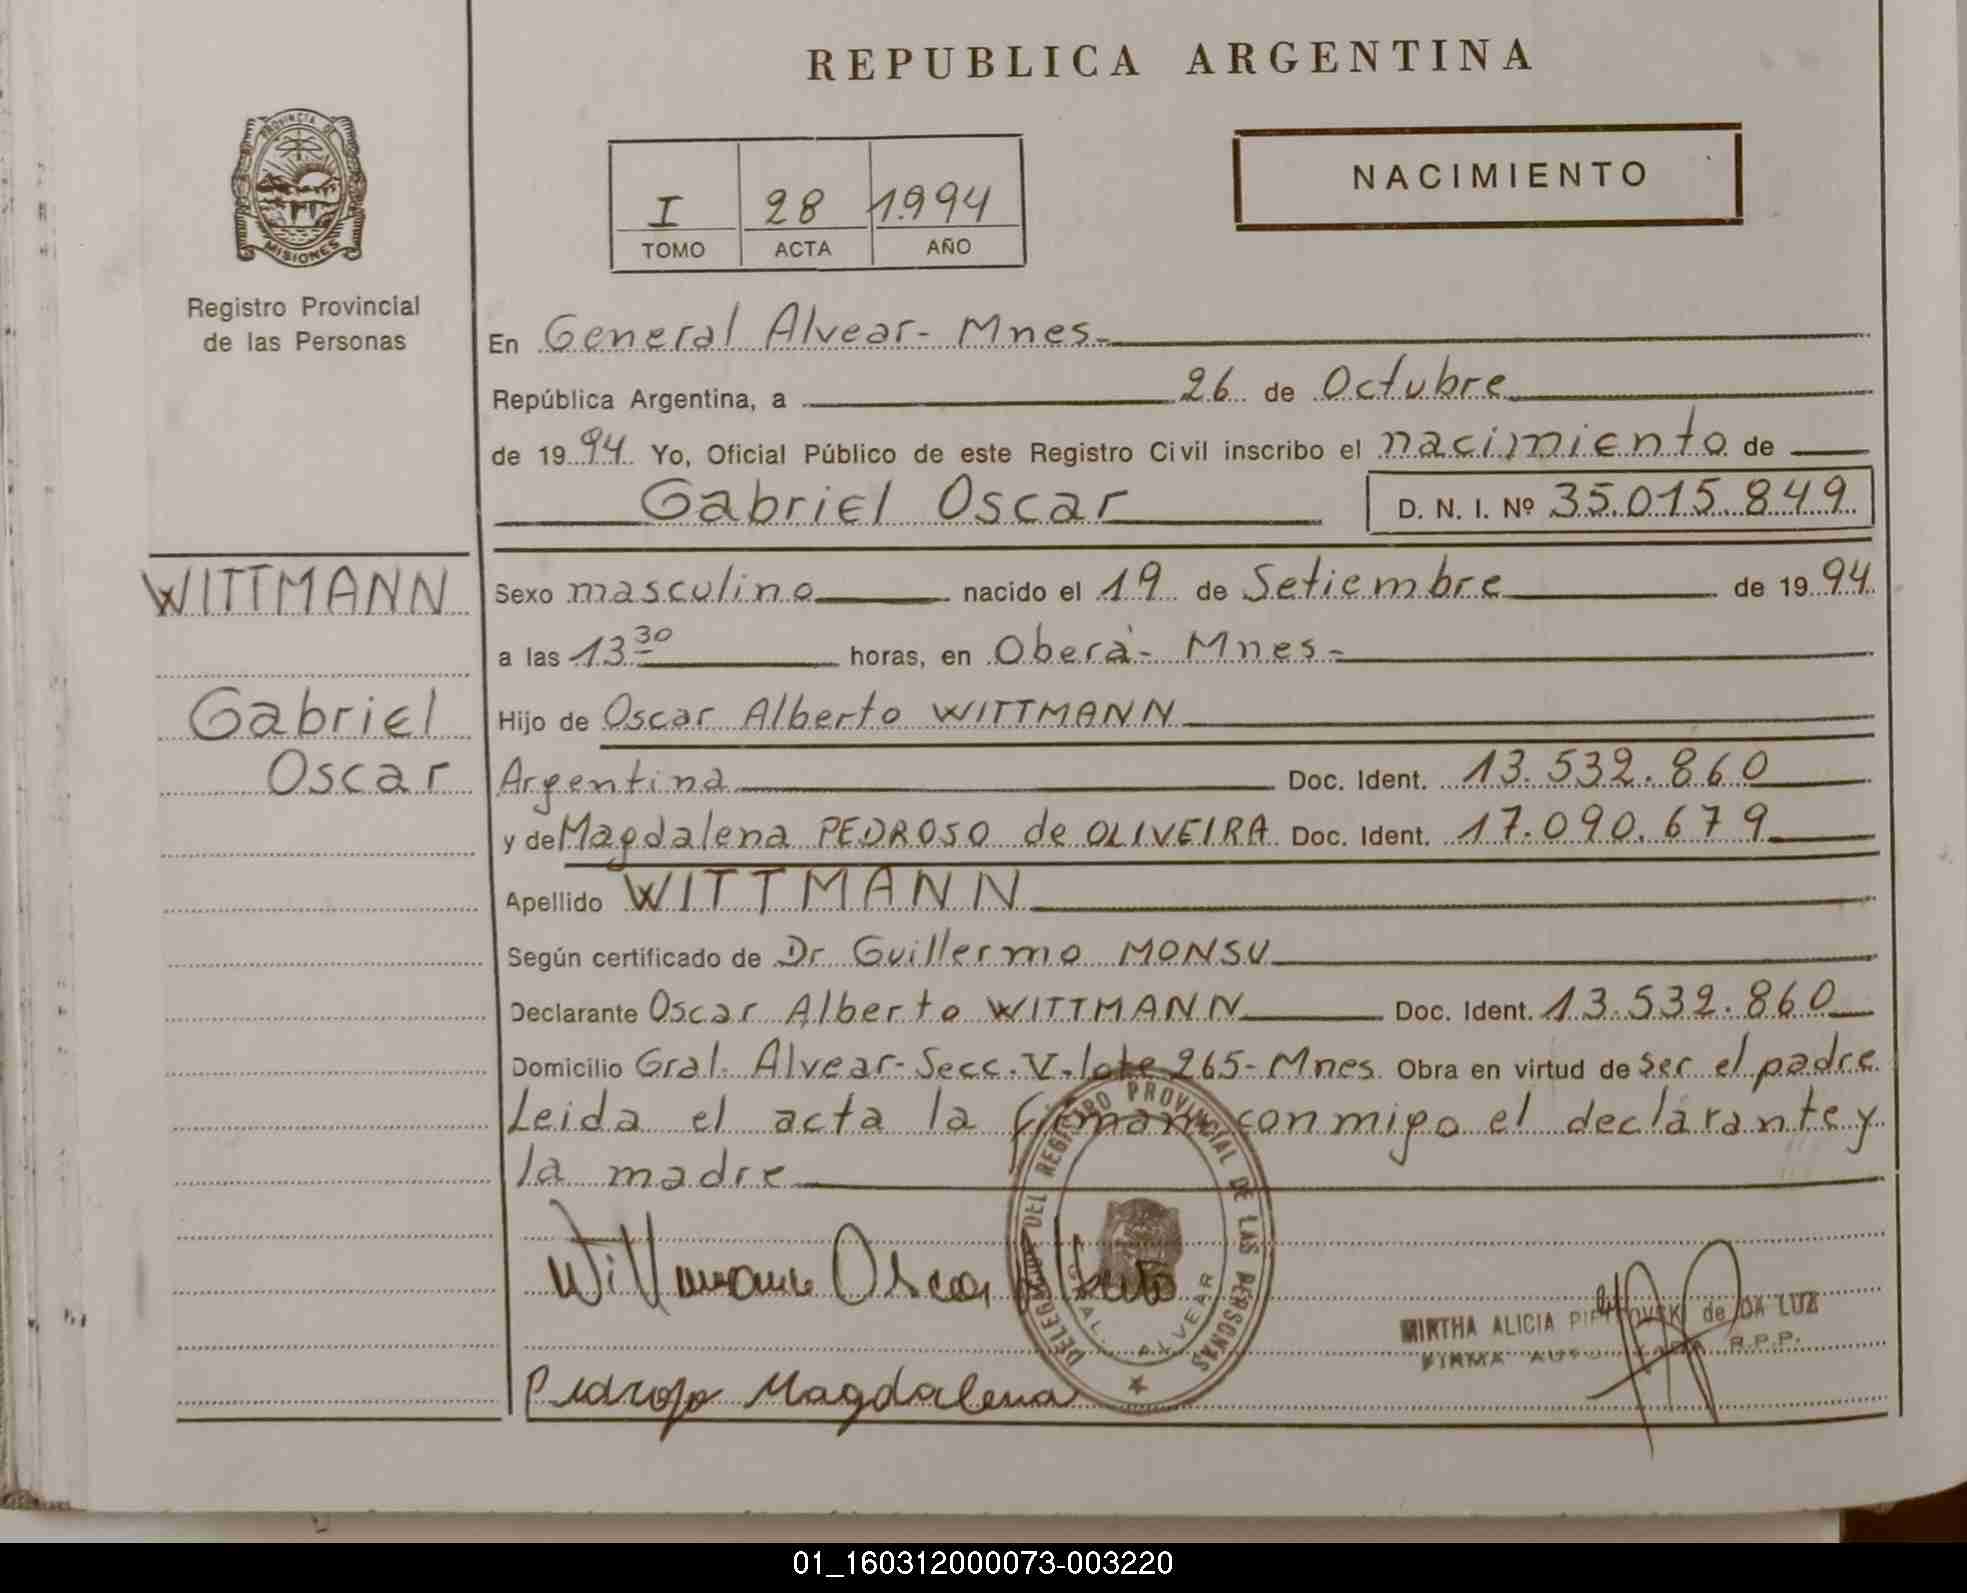 REPUBLICA ARGENTINA
PROVINCIA DE
MISIONES
Registro Provincial
de las Personas
I 28 1994
TOMO ACTA AÑO
NACIMIENTO
En General Alvear - Mnes.
República Argentina, a 26 de Octubre
de 1994 Yo, Oficial Público de este Registro Civil inscribo el nacimiento de
Gabriel Oscar D. N. I. Nº 35.015.849
WITTMANN
Gabriel
Oscar
Sexo masculino nacido el 19 de Setiembre de 1994
a las 13 30 horas, en Oberá - Mnes -
Hijo de Oscar Alberto WITTMANN
Argentina Doc. Ident. 13.532.860
y de Magdalena PEDROSO de OLIVEIRA Doc. Ident. 17.090.679
Apellido WITTMANN
Según certificado de Dr Guillermo MONSU
Declarante Oscar Alberto WITTMANN Doc. Ident. 13.532.860
Domicilio Gral. Alvear - Secc. V. lote 265 - Mnes Obra en virtud de ser el padre
Leida el acta la firman conmigo el declarante y
la madre
Wittmann Oscar Alberto
DELEGACION DEL REGISTRO PROVINCIAL DE LAS PERSONAS
GRAL. ALVEAR
MIRTHA ALICIA de DA LUZ
FIRMA R.P.P.
Pedroso Magdalena
01_160312000073-003220